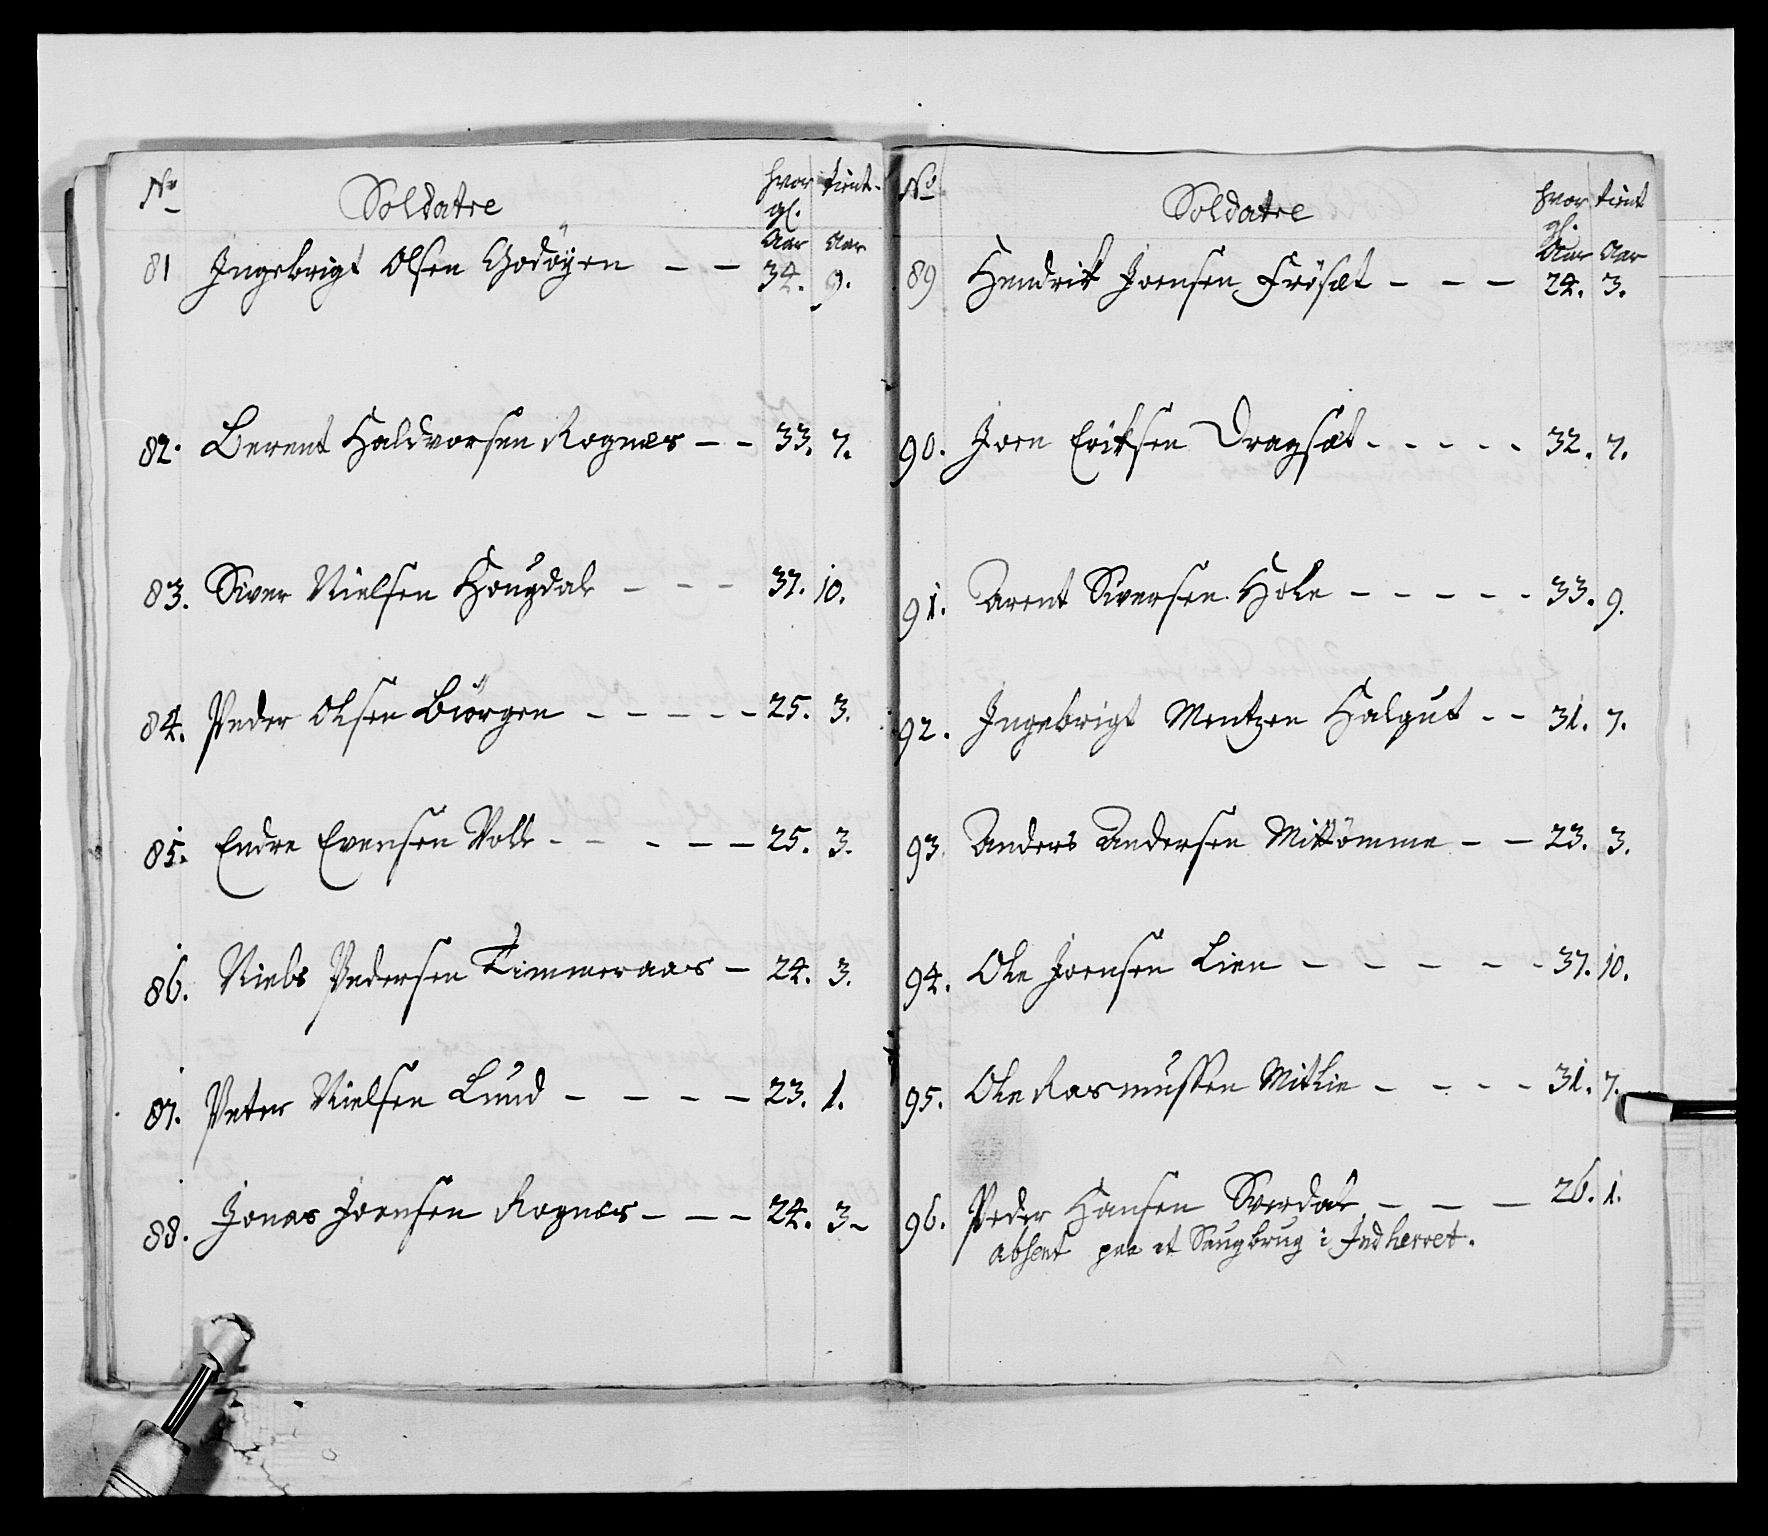 No
Soldatre
hvor gl.
tient
Aar
Aar
81 Ingebrigt Olsen Godöyen – – 34. 9.
82. Berent Haldvorsen Rognes – – 33. 7.
83. Siver Nielsen Hougdal – – – 37. 10.
84. Peder Olsen Biörgen – – – – – 25. 3.
85. Endre Evensen Voll – – – – – 25. 3.
86. Niels Pedersen Kimmeraas – 24. 3.
87. Peter Nielsen Lund – – – – 23. 1.
88. Jonas Joensen Rognes – – – 24. 3–
No
Soldatre
hvor gl.
tient
Aar
Aar
89 Hendrik Joensen Frösæt – – – 24. 3.
90. Joen Eriksen Dragsæt – – – – – 32. 7.
91. Arent Siversen Hole – – – – – 33. 9.
92. Ingebrigt Mentzen Halgut – – 31. 7.
93. Anders Andersen Mittömme – – 23. 3.
94. Ole Joensen Lien – – – – – 37. 10.
95. Ole Rasmussen Mitlie – – – – 31. 7.
96. Peder Hansen Sverdal – – – 26. 1.
absent paa et Saugbrug i Indherret.